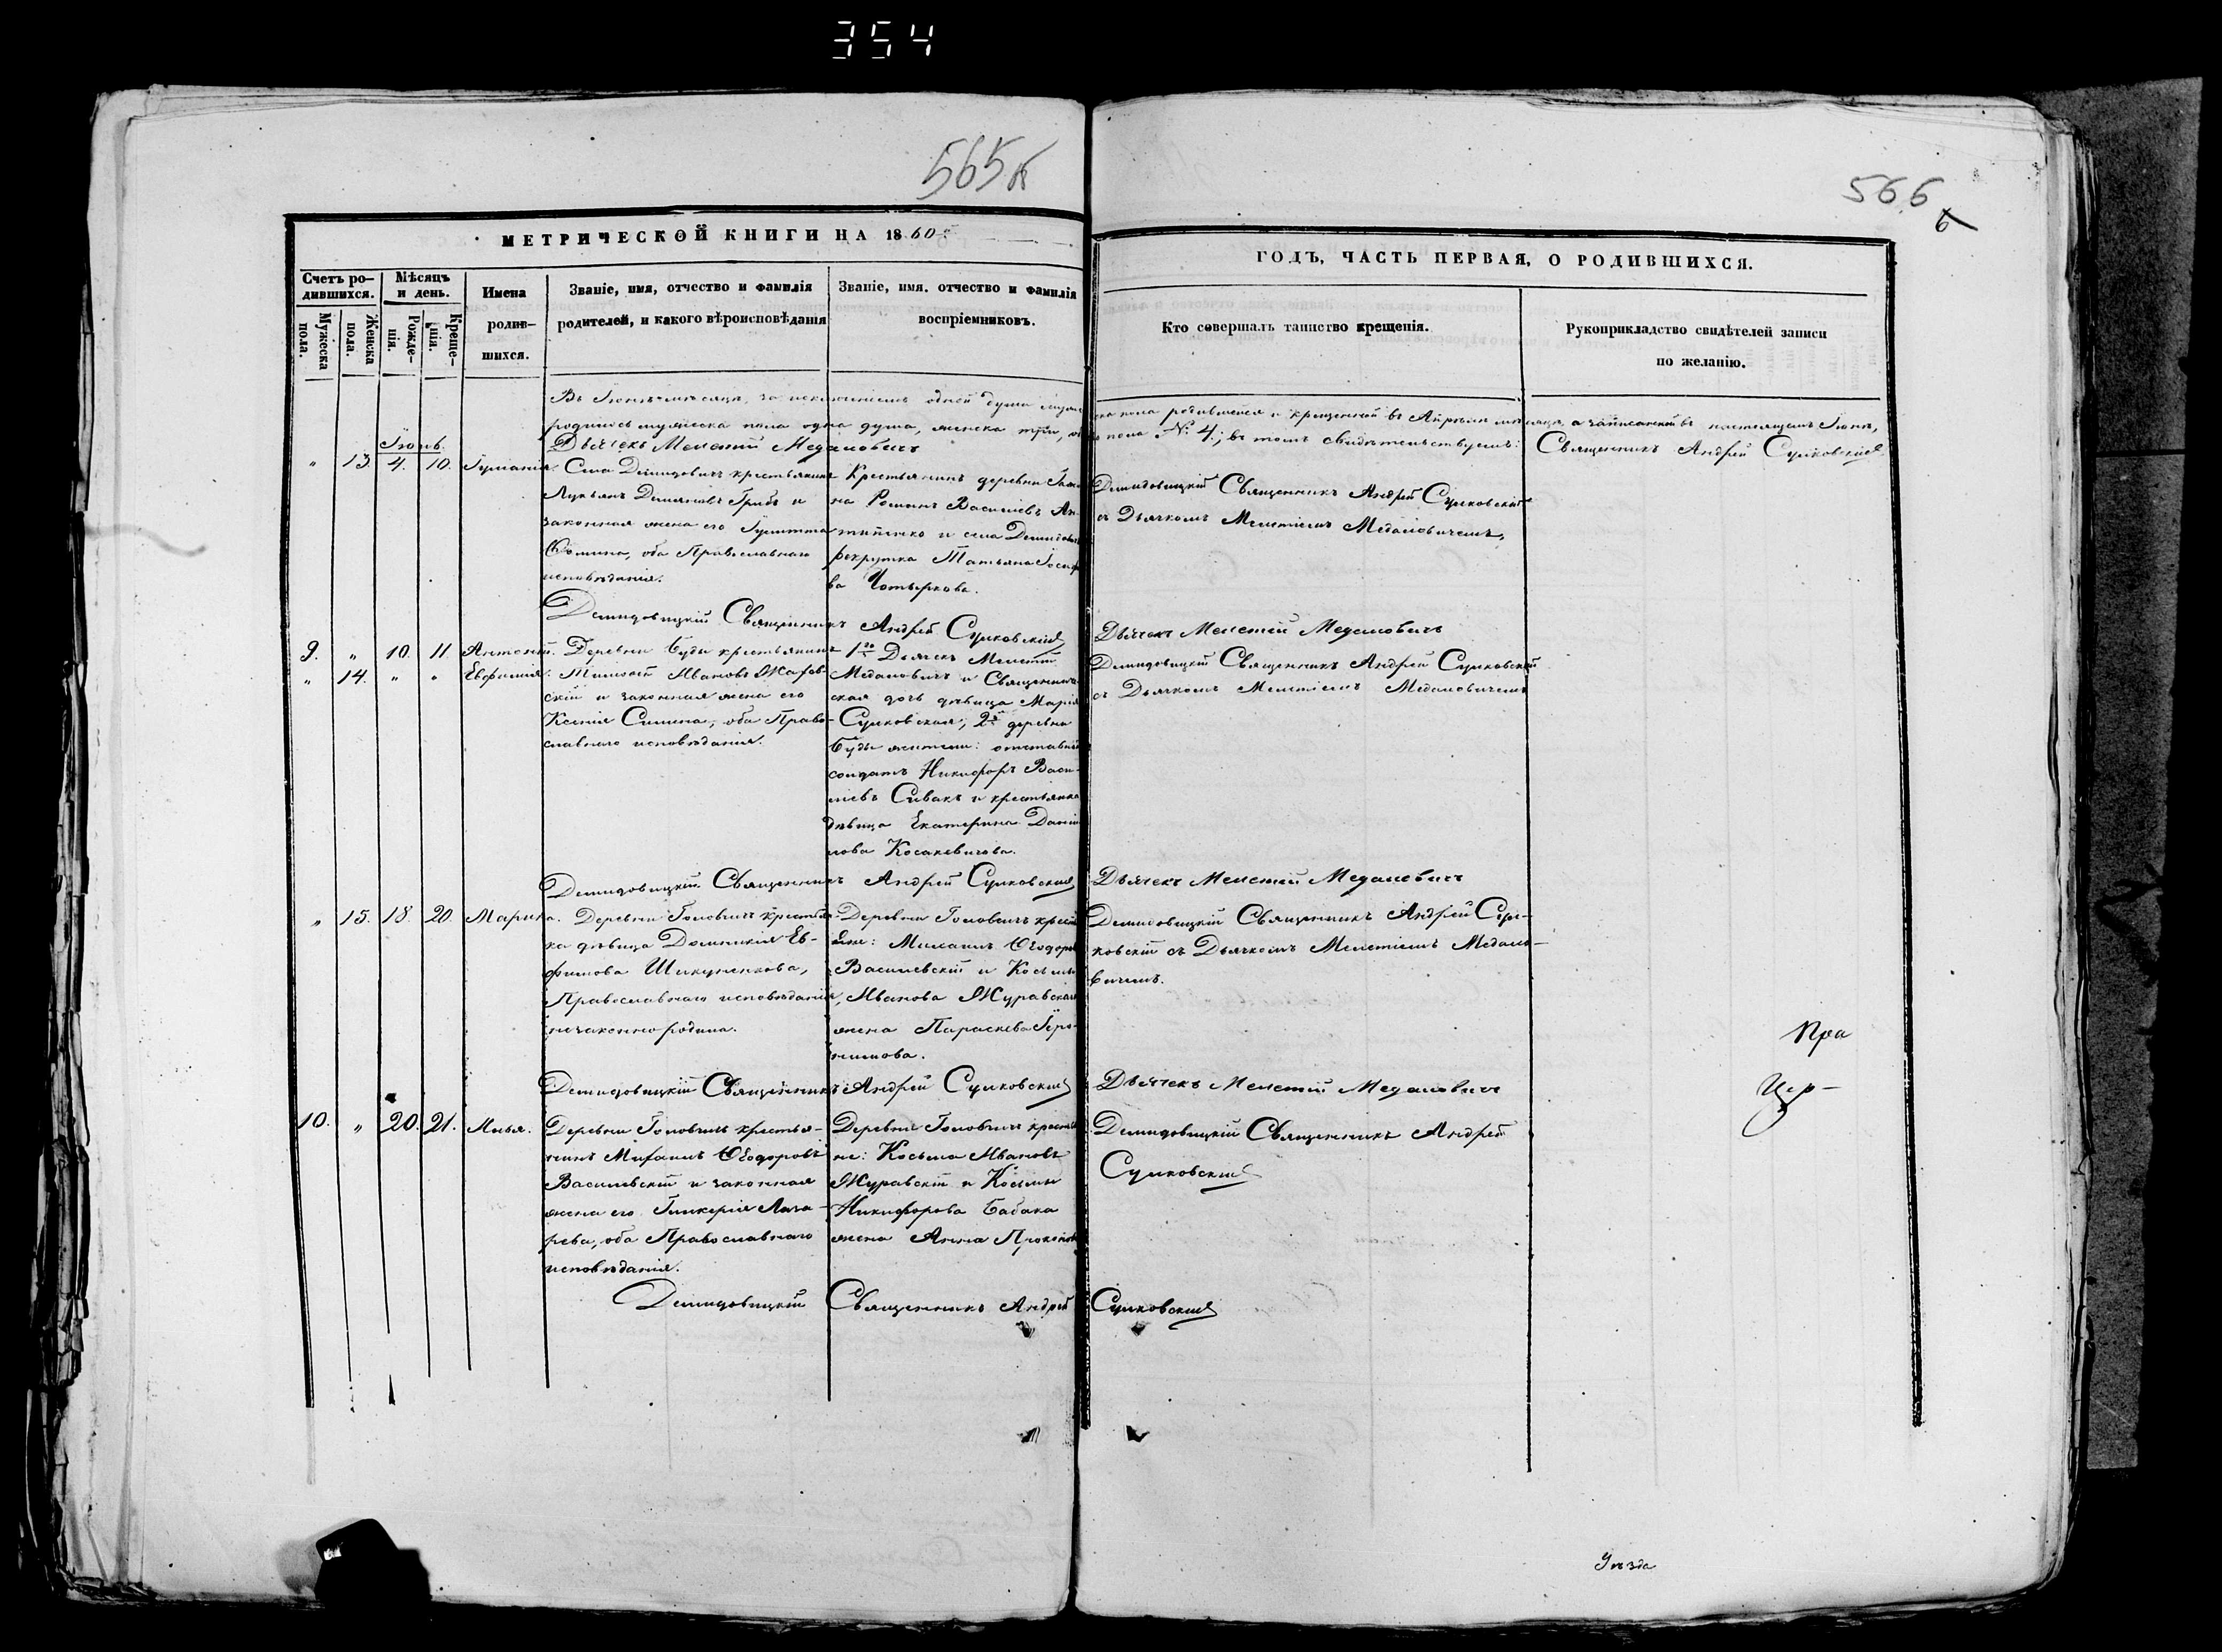 354
565
566
6
МЕТРИЧЕСКОЙ КНИГИ НА 1860
ГОДЪ, ЧАСТЬ ПЕРВАЯ, О РОДИВШИХСЯ.
Счетъ ро-
дившихся.
Мужеска
пола.
Женска
пола.
Мѣсяцъ
и день.
Рожде-
нія.
Креще-
нія.
Имена
родив-
шихся.
Званіе, имя, отчество и фамилія
родителей, и какого вѣроисповѣданія
Званіе, имя, отчество и фамилія
воспріемниковъ.
Кто совершалъ таинство крещенія.
Рукоприкладство свидѣтелей записи
по желанію.
Въ Іюнѣ мѣсяцѣ, за исключеніемъ одной души
родилось мужеска пола одна душа, женска три,
пола родившейся и крещенной въ Апрѣлѣ мѣсяцѣ, а записанной въ настоящемъ Іюнѣ,
пола № 4; въ томъ свидѣтельствуемъ: Священникъ Андрей Сулковскій
Дьячекъ Мелетій Медаловичъ
Іюнь.
" 13. 4. 10. Іуліанія.
Села Демидовичъ крестьянинъ
Лукьянъ Грибъ и
законная жена его Іулитта
Ѳомина, оба Православнаго
исповѣданія.
Крестьянинъ деревни
на Романъ Василіевъ Ан-
типенко и села Демидовичъ
рекрутка Татьяна
ва
Демидовицкій Священникъ Андрей Сулковскій
съ Дьячкомъ Мелетіемъ Медаловичемъ.
Демидовицкій Священникъ Андрей Сулковскій
Дьячекъ Мелетій Медаловичъ
9. " 10. 11. Антоній.
" 14. " " Евфимія.
Деревни Буды крестьянинъ
Тимоѳей Ивановъ
скій и законная жена его
Ксенія Симина, оба Право-
славнаго исповѣданія.
1го Дьячекъ Мелетій
Медаловичъ и Священниче-
ская дочь дѣвица Марія
Сулковская; 2й деревни
Буды жители: отставный
солдатъ Никифоръ Васи-
ліевъ Сивакъ и крестьянка
дѣвица Екатерина Даніи-
лова Косакевичова.
Демидовицкій Священникъ Андрей Сулковскій
съ Дьячкомъ Мелетіемъ Медаловичемъ
Демидовицкій Священникъ Андрей Сулковскій
Дьячекъ Мелетій Медаловичъ
" 15. 18. 20. Марина.
Деревни Головчицъ крестьян-
ка дѣвица Домникія Ев-
фимова Шикуненкова,
Православнаго исповѣданія,
незаконно родила.
Деревни Головчицъ кресть-
яне: Михаилъ Ѳеодоровъ
Василевскій и Косьмы
Иванова Журавскаго
жена Параскева Іеро-
нимова.
Демидовицкій Священникъ Андрей Сул-
ковскій съ Дьячкомъ Мелетіемъ Медало-
вичемъ.
Демидовицкій Священникъ Андрей Сулковскій
Дьячекъ Мелетій Медаловичъ
10. " 20. 21. Илья.
Деревни Головчицъ крестья-
нинъ Михаилъ Ѳеодоровъ
Василевскій и законная
жена его Гликерія Лаза-
рева, оба Православнаго
исповѣданія.
Деревни Головчицъ крестья-
не: Косьма Ивановъ
Журавскій и Косьмы
Никифорова Бабака
жена Анна Прокопова
Демидовицкій Священникъ Андрей
Сулковскій
Демидовицкій Священникъ Андрей Сулковскій
Пра
Цер-
Уѣзда